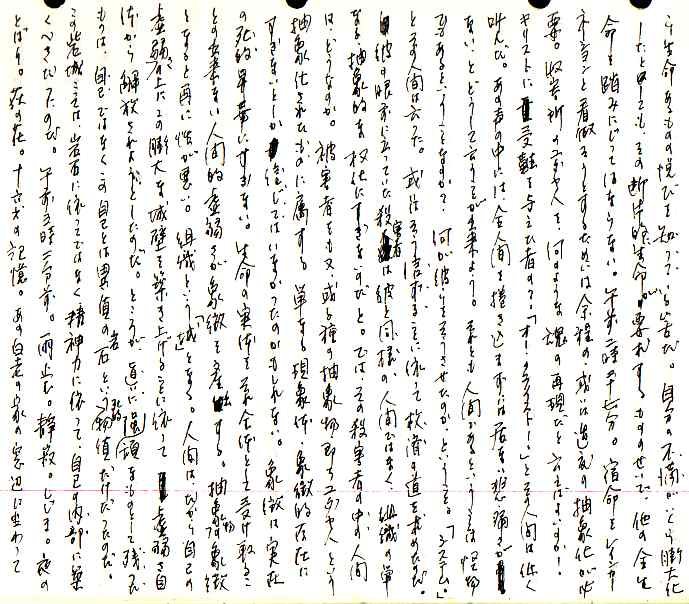 う生命あるものの悦びを知っている筈だ。自分の不満がいくら断大化
したとしても、その断片的生命が要求するもののせいで、他の全生
命を踏みにじってはならない。午前二時五十七分。宿命をレインカー
ネーションと看做そうとするためには余程の或いは過剰の抽象化が必
要。収容所のユダヤ人を、何のような魂の再現だと言えばよいのか！
キリストに受難を与えた者の？「オー・クライスト！」とその人間は低く
叫んだ。あの声の中には、全人間を捲き込まずには居ない悲痛さが
ないとどうして言うことが出来よう。それとも人間であるということは怪物
であるということなのか？ 何が彼にそうさせたのか、ということ。「システム。」
とその人間は言った。或はそう信ずることに依って救済の道を求めたのだ。
彼の眼前に立っていた殺害者は彼と同様の人間ではなく、組織の単
なる抽象的な権化にすぎないのだと。では、その殺害者の中の人間
は、どうなのか。被害者をも又或る種の抽象物即ちユダヤ人という
抽象化されたものに属する単なる現象体、象徴的存在に
すぎないとしか信じてはいなかったのかもしれない。象徴は実在
の死的昇華にすぎない。生命の実体をそれ全体として受け取るこ
との出来ない人間的虚弱さが象徴を産出する。抽象物が象徴
となると再に性が悪い。組織という「城」となる。人間はだから自己の
虚弱さの上にこの断大な城壁を築き上げることに依って虚弱さ自
体から解放されようとしたのだ。ところが逆に退頽をものとして残った
ものは、自己ではなくこの自己とは異質の岩石という物質だけだったのだ。
この岩城こそは、岩石に依ってではなく精神力に依って、自己の内部に築
くべきだったのだ。午前三時二分前。雨止む。静寂。しじま。夜の
とばり。萩の花。十六才の記憶。あの白走の家の窓辺に坐わって